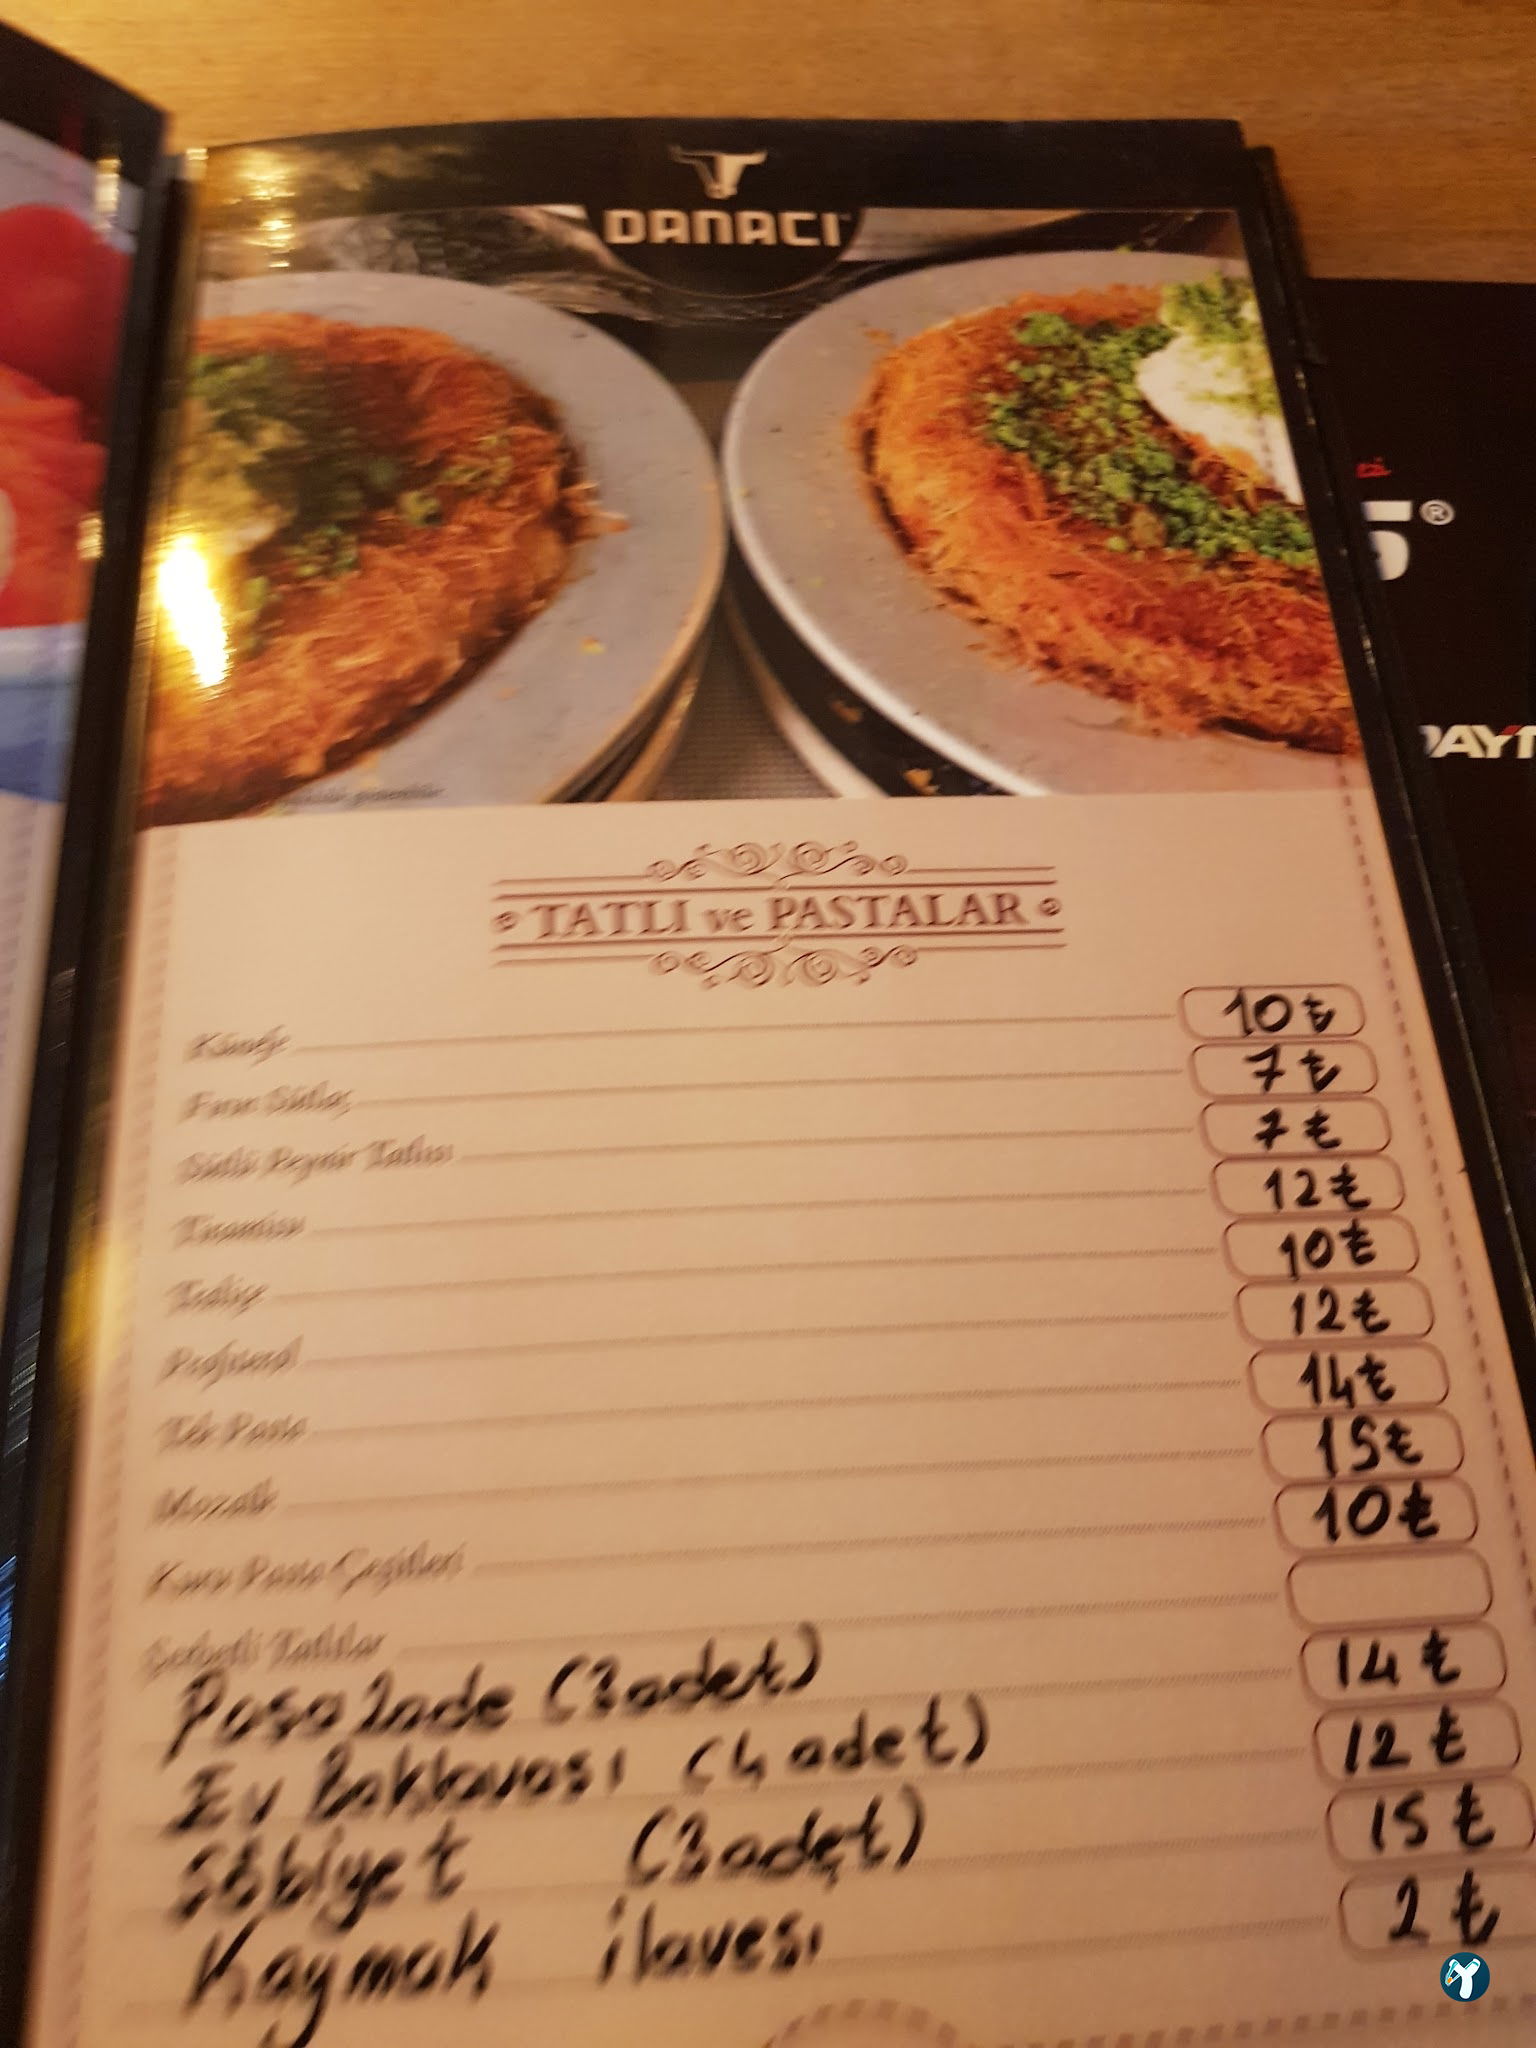 DANACI
®
TATLI ve PASTALAR
Künefe 10 ₺
Fırın Sütlaç 7 ₺
Sütlü Peynir Tatlısı 7 ₺
Tiramisu 12 ₺
Trileçe 10 ₺
Profiterol 12 ₺
Tek Pasta 14 ₺
Mozaik 15 ₺
Kuru Pasta Çeşitleri 10 ₺
Şerbetli Tatlılar
Paşazade (3 adet) 14 ₺
Ev Baklavası (4 adet) 12 ₺
Söbiyet (3 adet) 15 ₺
Kaymak ilavesi 2 ₺